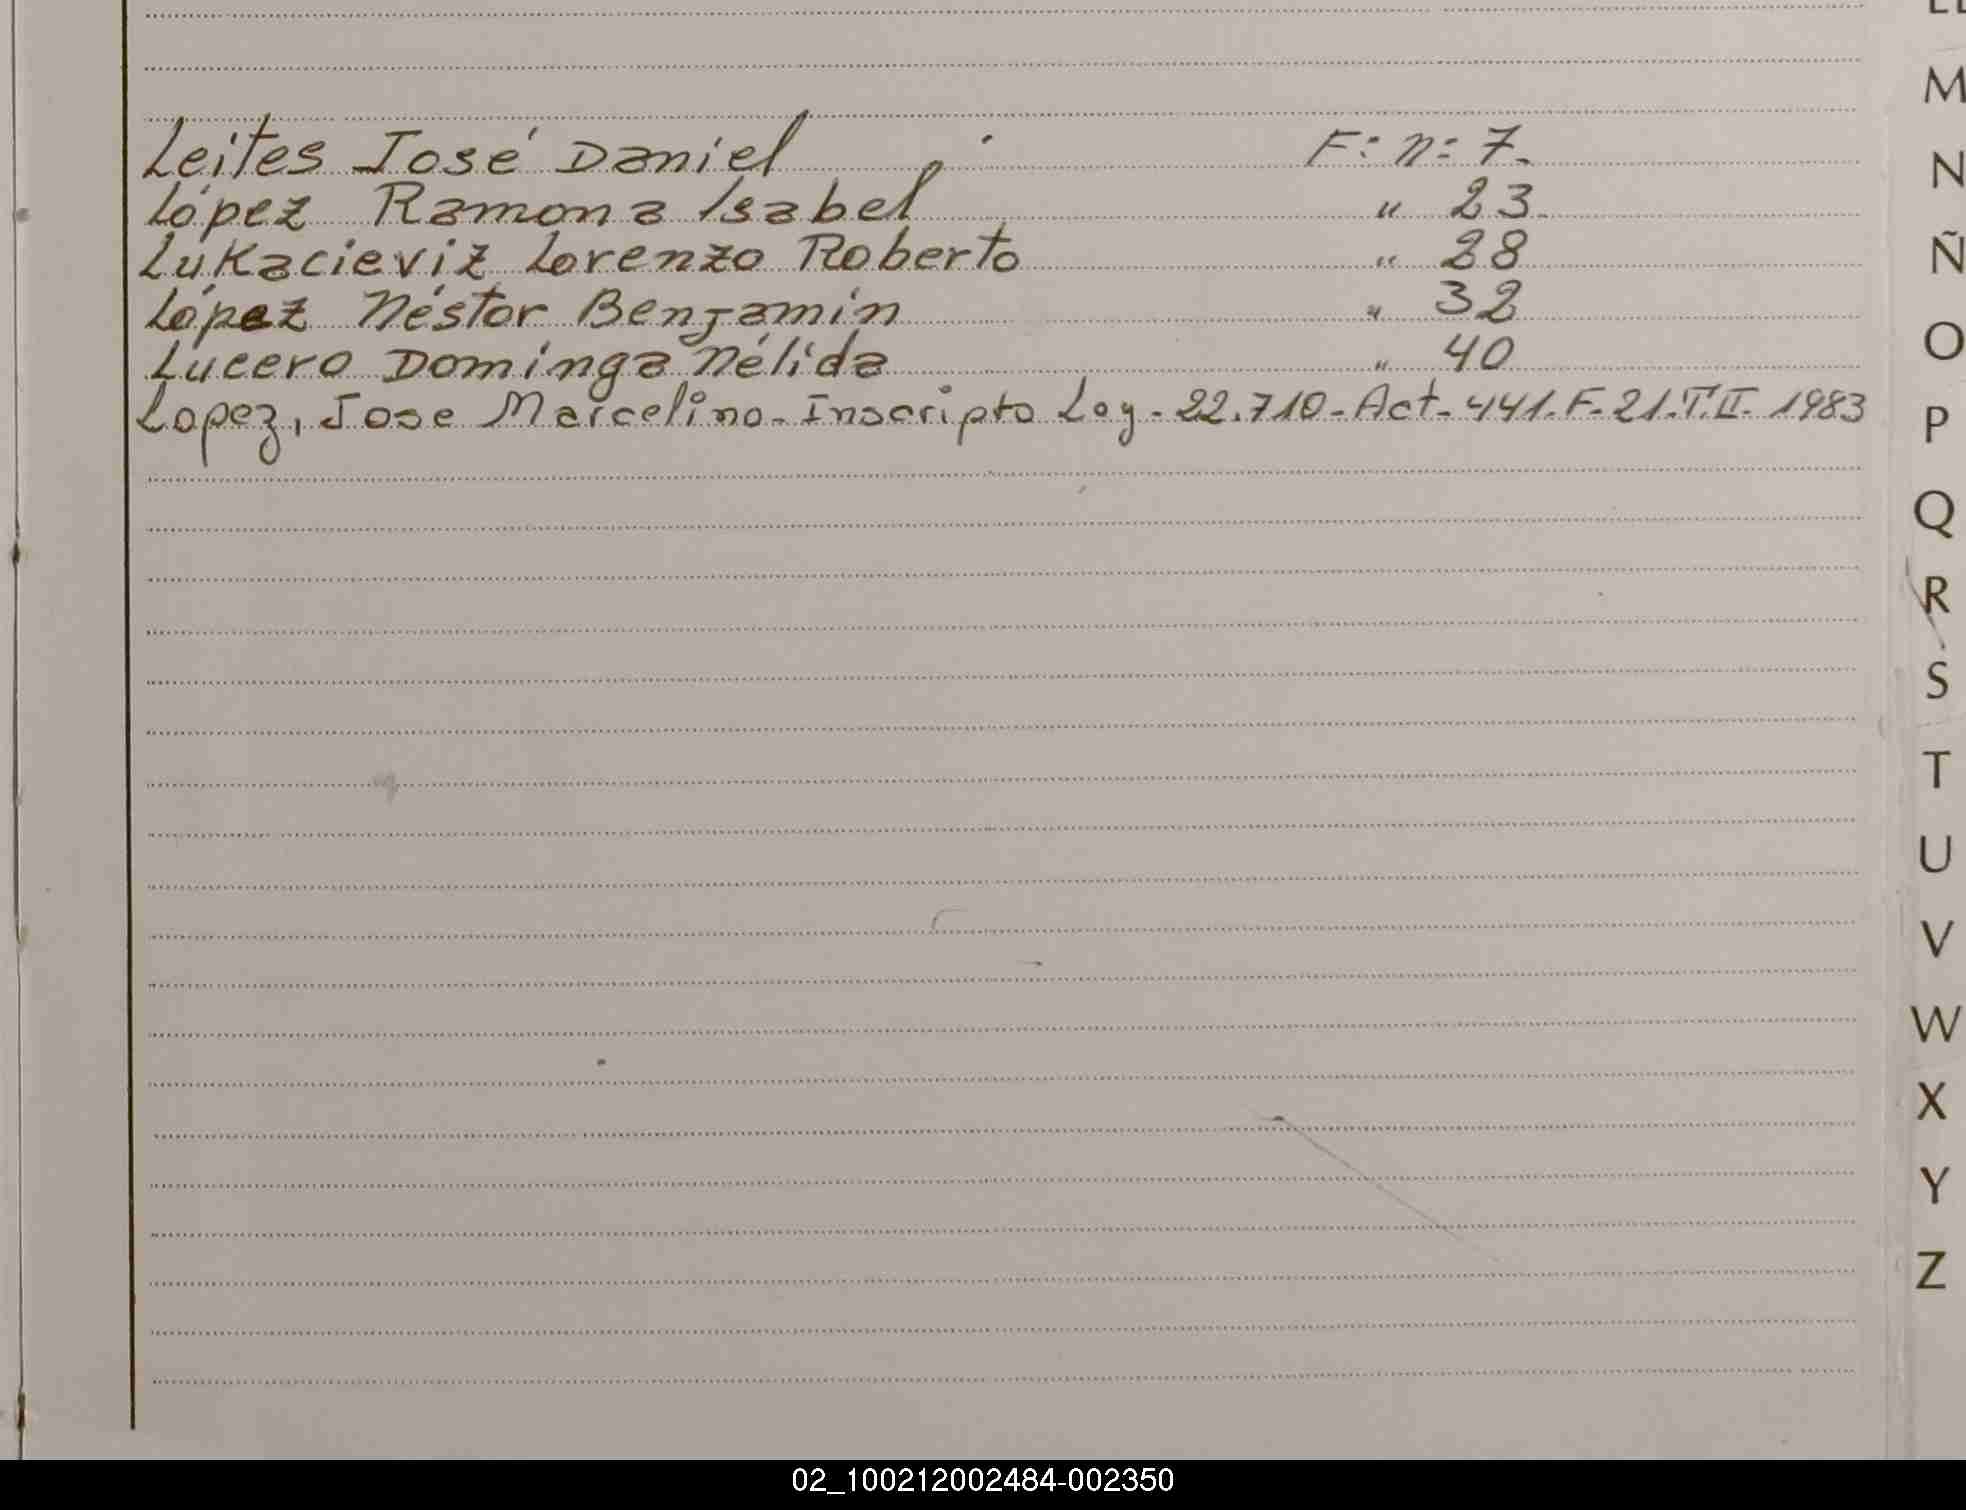 Leites José Daniel F: n: 7.
López Ramona Isabel " 23.
Lukacieviz Lorenzo Roberto " 28
López Néstor Benjamín " 32
Lucero Dominga Nélida " 40
Lopez, Jose Marcelino - Inscripto Ley - 22.710 - Act - 441. F - 21. T. II - 1983
M
N
Ñ
O
P
Q
R
S
T
U
V
W
X
Y
Z
02_100212002484-002350